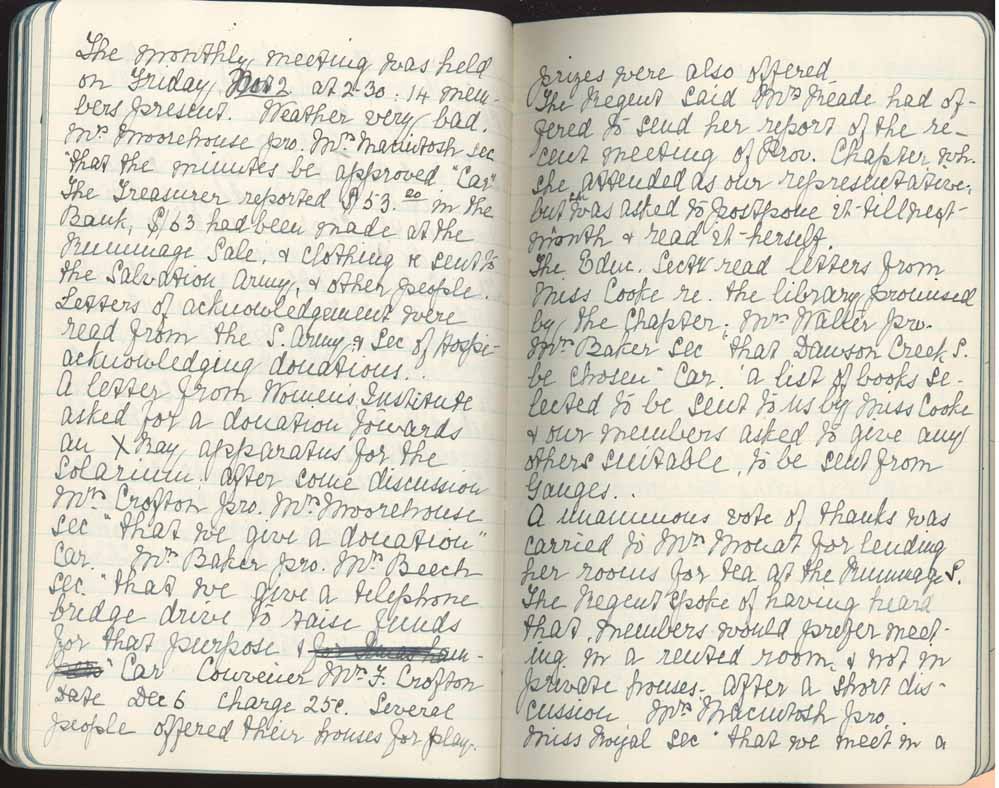 The monthly meeting was held
on Friday Nov 2 at 2-30: 14 mem-
bers present. Weather very bad.
Mrs Moorehouse pro. Mrs Macintosh sec
"that the minutes be approved" "Car"
The Treasurer reported $53.20 in the
Bank, $163 had been made at the
Rummage Sale, & clothing & sent to
the Salvation Army, & other people.
Letters of acknowledgement were
read from the S. Army & Sec of Hospi-
acknowledging donations..
A letter from Women's Institute
asked for a donation towards
an X Ray apparatus for the
Solarium. After some discussion
Mrs Crofton pro. Mrs Moorehouse
sec "that we give a donation"
Car. Mrs Baker pro. Mrs Beech
sec. "that we give a telephone
bridge drive to raise funds
for that purpose &
" Car Convener Mrs F. Crofton
Date Dec 6 Charge 25c. Several
people offered their houses for play.
prizes were also offered.
The Regent said Mrs Reade had of-
fered to send her report of the re-
cent meeting of Prov. Chapter wh.
she attended as our representative,
but was asked to postpone it till next
month & read it herself.
The Educ. Secty read letters from
Miss Cooke re. the library promised
by the Chapter: Mrs Walter pro.
Mrs Baker sec "that Dawson Creek S.
be chosen" Car. a list of books se-
lected to be sent to us by Miss Cooke
& our members asked to give any
others suitable, to be sent from
Ganges..
A unanimous vote of thanks was
carried to Mrs Mouat for lending
her rooms for tea at the Rummage S.
The Regent spoke of having heard
that members would prefer meet-
ing in a rented room, & not in
private houses. After a short dis-
cussion, Mrs Macintosh pro.
Miss Royal sec "that we meet in a